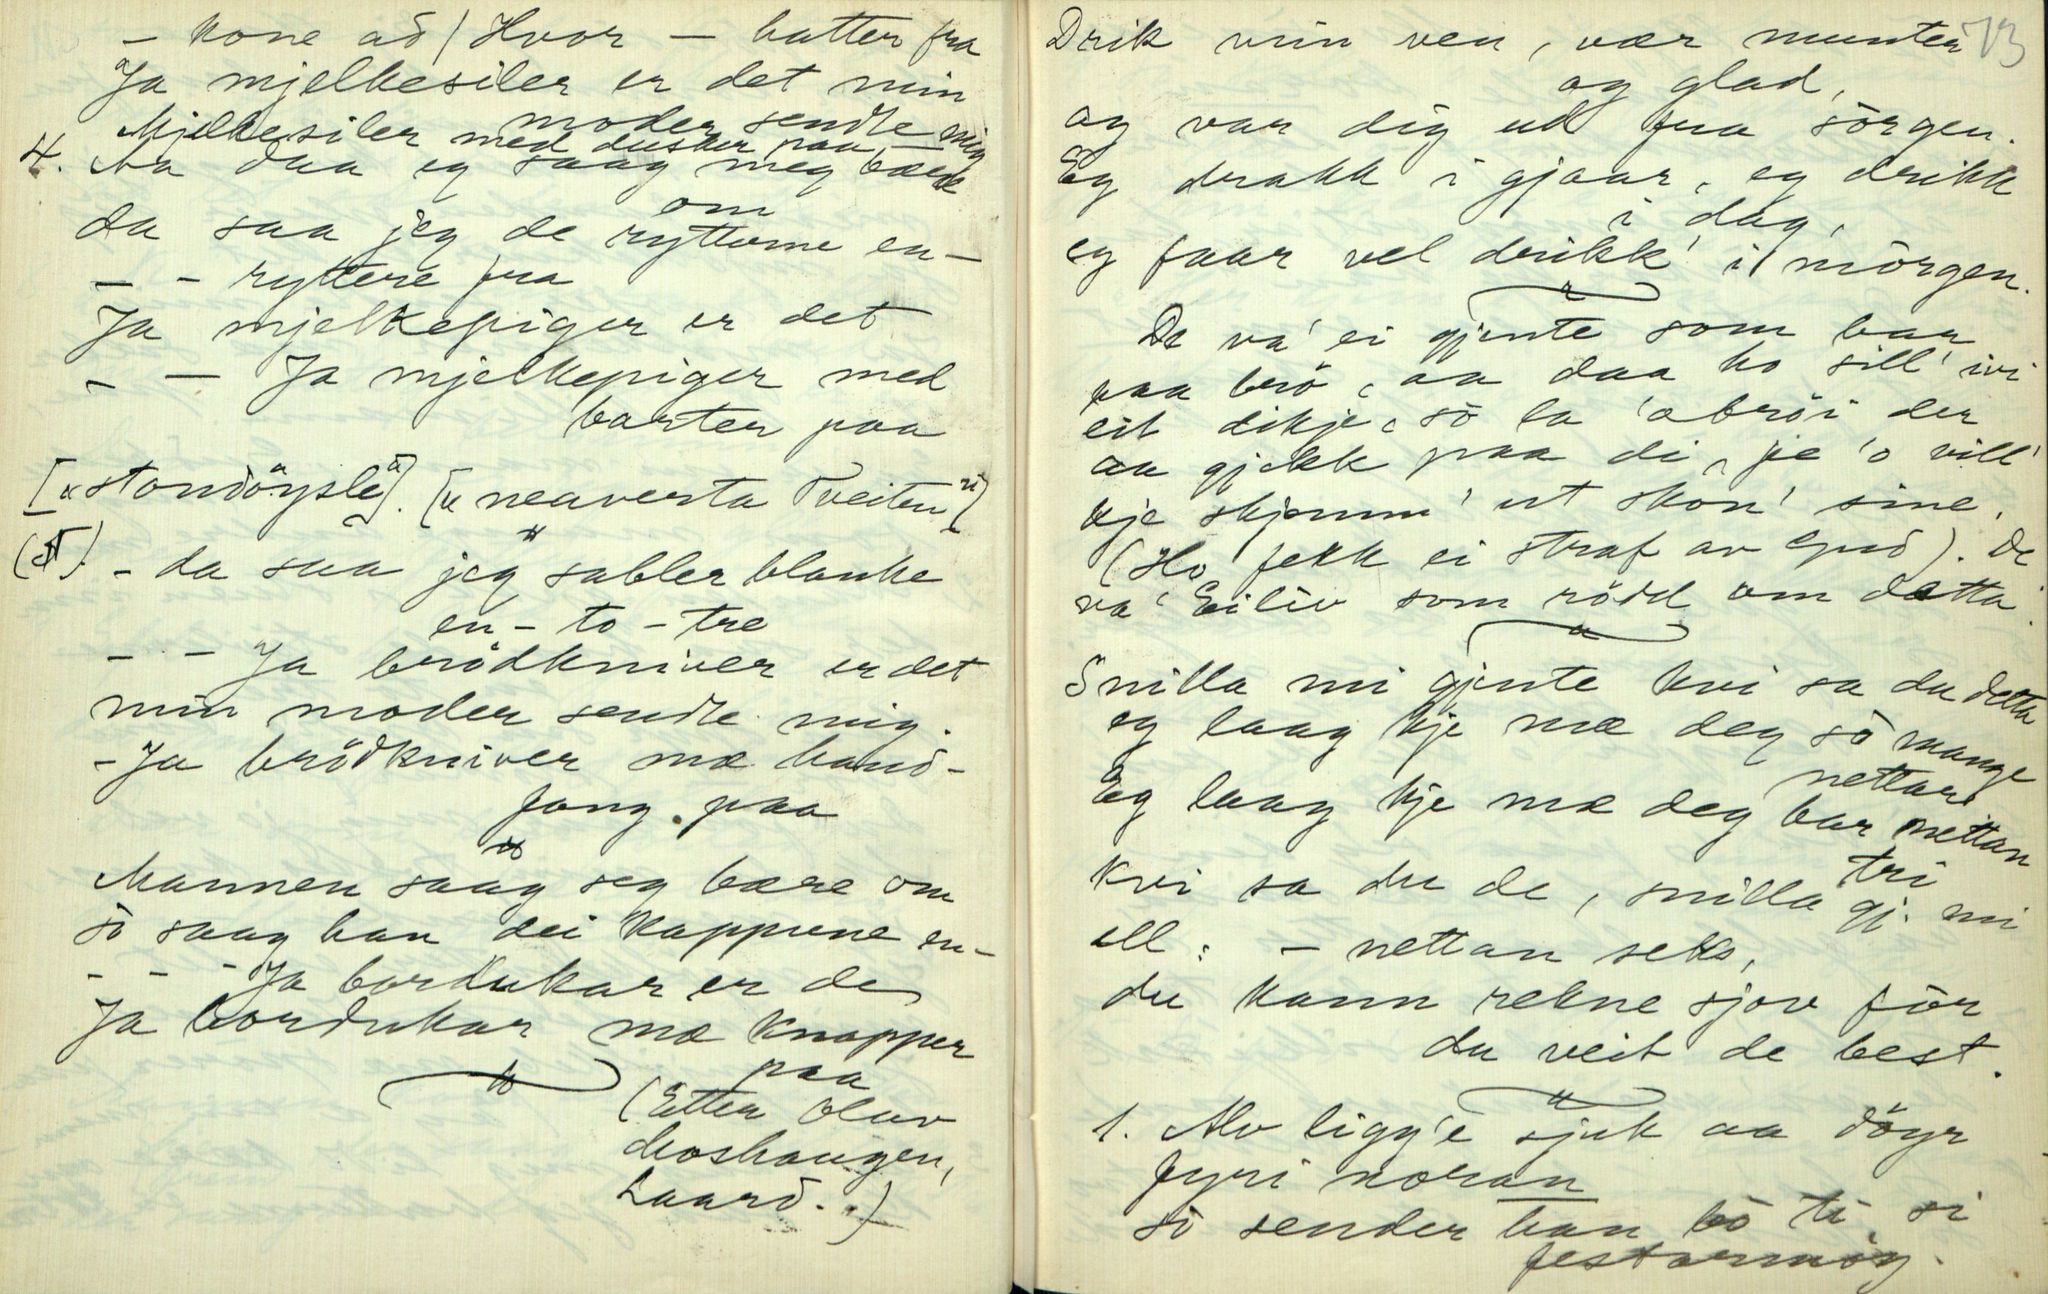 - kone ad / Hvor - hatter fra
Ja mjelkesiler er det min
moder sendte mig
Mjelkesiler med dusker paa
4. Aa daa eg saag meg bære
om
da saa jeg de rytterne en -
- - ryttere fra
Ja mjelkepiger er det
- - Ja mjelkepiger med
barter paa
["stondöysle"]. ["neaversta Tveiten"]
- da saa jeg sabler blanke
en - to - tre
- - Ja brödkniver er det
min moder sendte mig.
- Ja brödkniver mæ hand-
fang paa
Mannen saag seg bære om
so saag han dei kappune en -
- - - Ja bordukar er de
Ja bordukar mæ knapper
paa
(Etter Olav
Moshaugen,
Laard.)
73
Drik min ven, vær munter
og glad,
og var dig ud fra sörgen.
Eg drakk i gjaar, eg drikk
i dag,
eg faar vel drikk' i mörgen.
De va' ei gjente som bar
paa brö, aa daa ho sill' ivi
eit dikje, so la 'a bröi der
aa gjekk paa di, je 'o vill'
kje skjemm' ut skon' sine.
(Ho fekk ei straf av Gud). De
va' Eiliv som rödd om detta.
Snilla mi gjente kvi sa du detta
eg laag kje mæ deg so mange
nettar
Eg laag kje mæ deg bar nettan
tri
kvi sa du de, snilla gj. mi
ell: - nettan seks,
du kann rekne sjov för
du veit de best.
1. Alv ligg'e sjuk aa döyr
fyri moran
so sender han bö ti si
festarmöy.